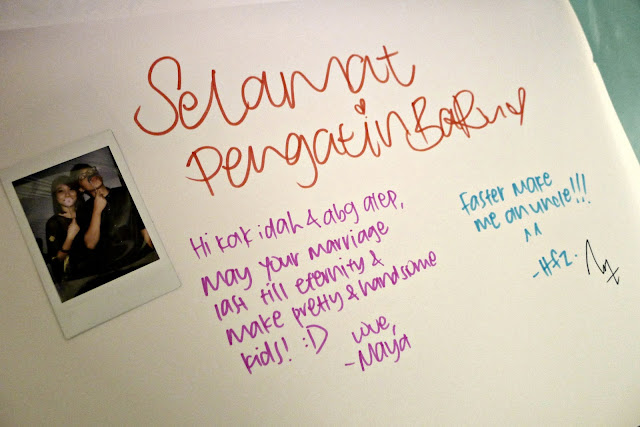 Selamat
Pengatin BaRu
Hi kak idah & abg alep,
may your marriage
last till eternity &
make pretty & handsome
kids! :D
love,
-Maya
Faster make
me an uncle!!!
^^
-Hfz.